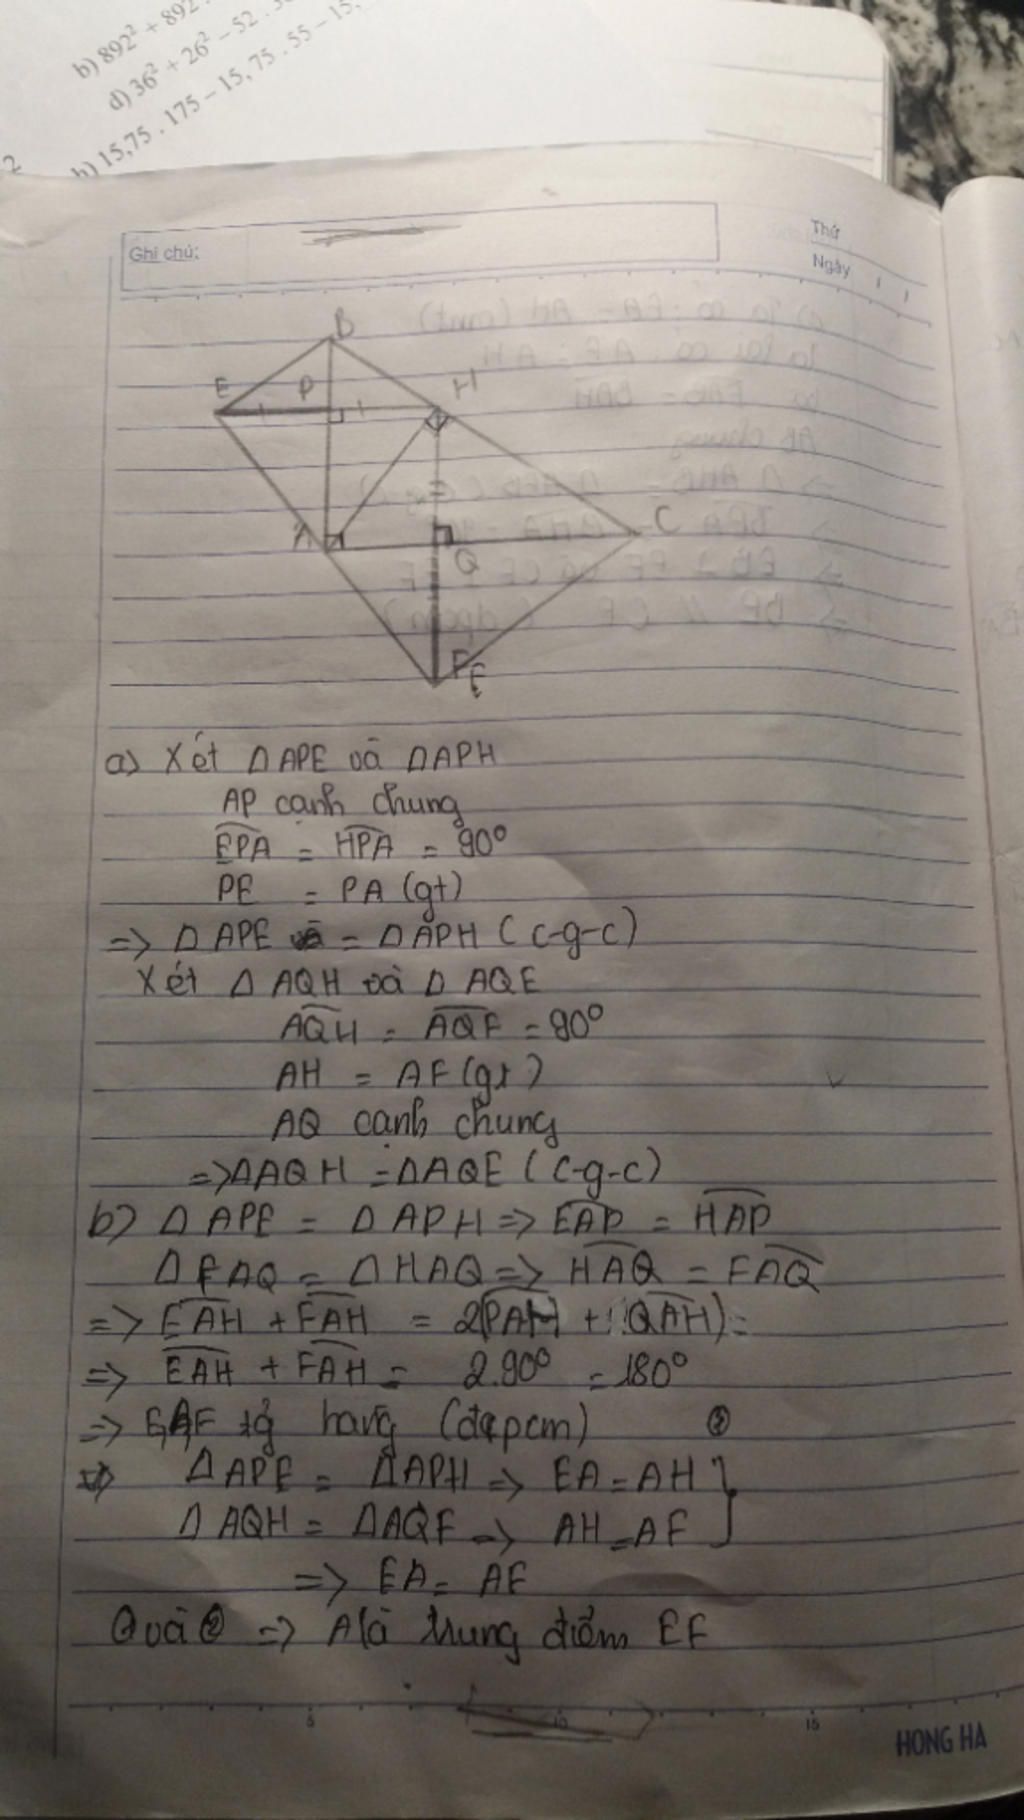 b) 892² + 892 .
d) 36² + 26² – 52 .
h) 15,75 . 175 – 15,75 . 55 – 15,
2
Ghi chú:
Thứ
Ngày / /
B
E P H
A C
Q
F
a) Xét Δ APE và ΔAPH
AP cạnh chung
EPA = HPA = 90°
PE = PA (gt)
=> Δ APE = ΔAPH ( c-g-c)
Xét Δ AQH và Δ AQE
AQH = AQF = 90°
AH = AF (gt)
AQ cạnh chung
=> ΔAQH = ΔAQE ( c-g-c)
b) Δ APE = Δ APH => EAP = HAP
Δ FAQ = Δ HAQ => HAQ = FAQ
=> EAH + FAH = 2(PAH + QAH) =
=> EAH + FAH = 2.90° = 180°
=> E,A,F hàng (đpcm)
Δ APE = ΔAPH => EA = AH }
Δ AQH = ΔAQF => AH = AF
=> EA = AF
=> A là trung điểm EF
5 10 15
HONG HA